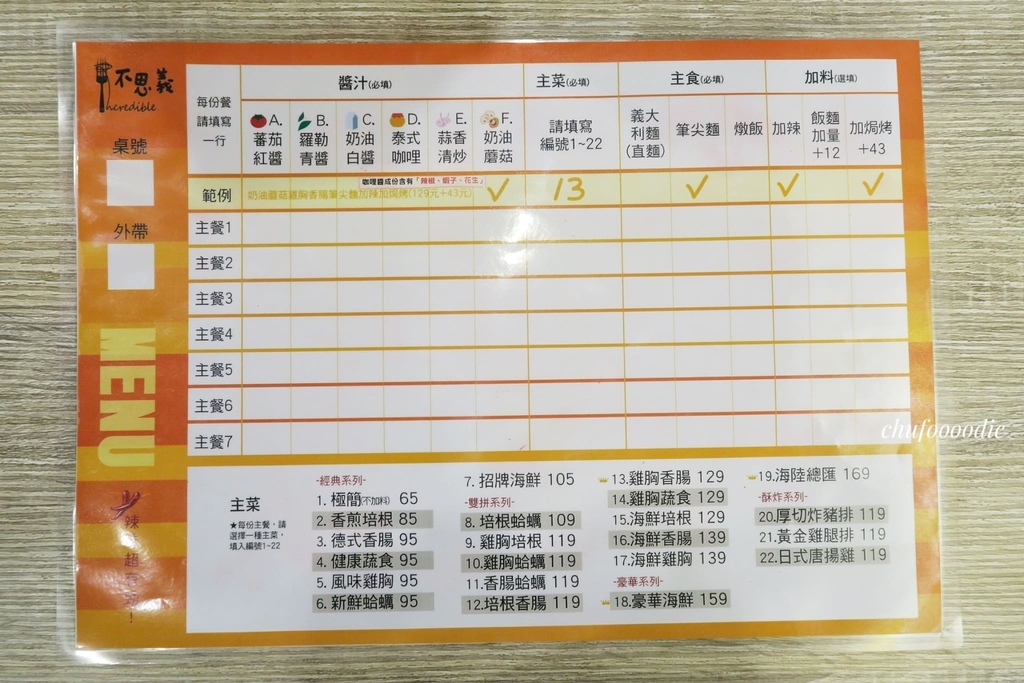 不思義
incredible
桌號
外帶
MENU
辣
超
!
每份餐
請填寫
一行
醬汁(必填)
主菜(必填)
主食(必填)
加料(選填)
A.
蕃茄
紅醬
B.
羅勒
青醬
C.
奶油
白醬
D.
泰式
咖哩
E.
蒜香
清炒
F.
奶油
蘑菇
請填寫
編號1~22
義大
利麵
(直麵)
筆尖麵
燉飯
加辣
飯麵
加量
+12
加焗烤
+43
咖哩醬成份含有「辣椒、蝦子、花生」
範例
奶油蘑菇雞胸香腸筆尖麵加辣加焗烤(129元+43元)
✓ 13 ✓ ✓ ✓
主餐1
主餐2
主餐3
主餐4
主餐5
主餐6
主餐7
主菜
★每份主餐,請
選擇一種主菜,
填入編號1~22
-經典系列-
1. 極簡(不加料) 65
2. 香煎培根 85
3. 德式香腸 95
4. 健康蔬食 95
5. 風味雞胸 95
6. 新鮮蛤蠣 95
7. 招牌海鮮 105
-雙拼系列-
8. 培根蛤蠣 109
9. 雞胸培根 119
10.雞胸蛤蠣 119
11.香腸蛤蠣 119
12.培根香腸 119
13.雞胸香腸 129
14.雞胸蔬食 129
15.海鮮培根 129
16.海鮮香腸 139
17.海鮮雞胸 139
-豪華系列-
18.豪華海鮮 159
19.海陸總匯 169
-酥炸系列-
20.厚切炸豬排 119
21.黃金雞腿排 119
22.日式唐揚雞 119
chufoooodie